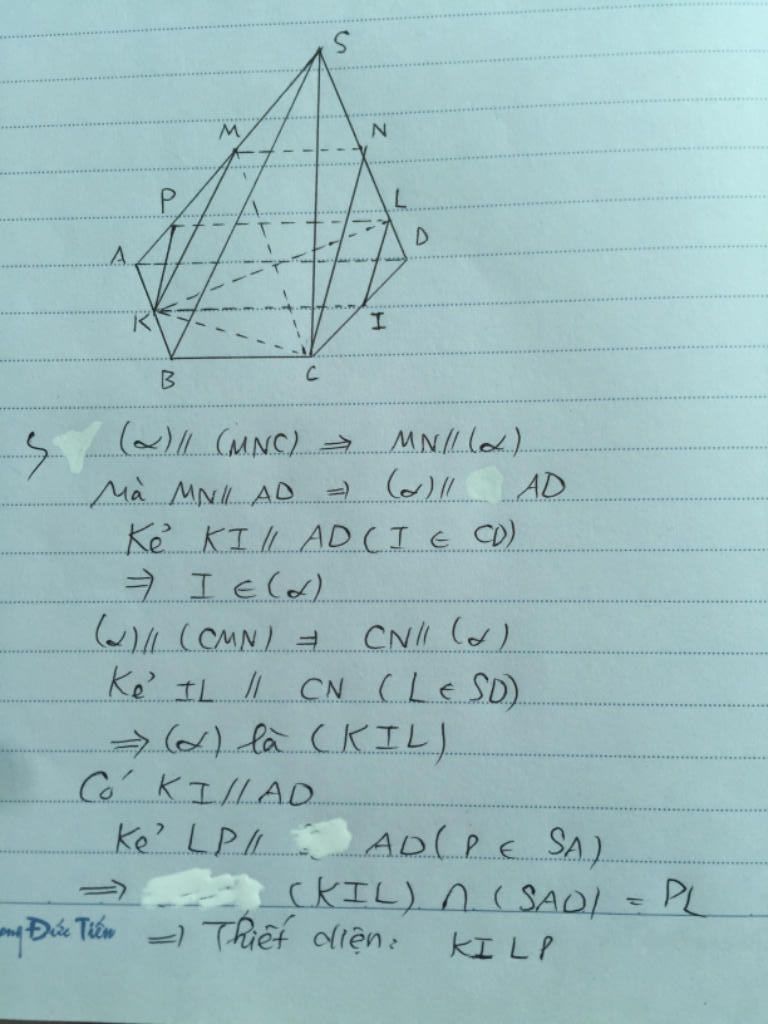 S
M N
P L
A D
K I
B C
(α) // (MNC) ⇒ MN // (α)
Mà MN // AD ⇒ (α) // AD
Kẻ KI // AD ( I ∈ CD)
⇒ I ∈ (α)
(α) // (CMN) ⇒ CN // (α)
Kẻ IL // CN ( L ∈ SD)
⇒ (α) là (KIL)
Có KI // AD
Kẻ LP // AD ( P ∈ SA)
⇒ (KIL) ∩ (SAD) = PL
Đức Tiến ⇒ Thiết diện: KILP